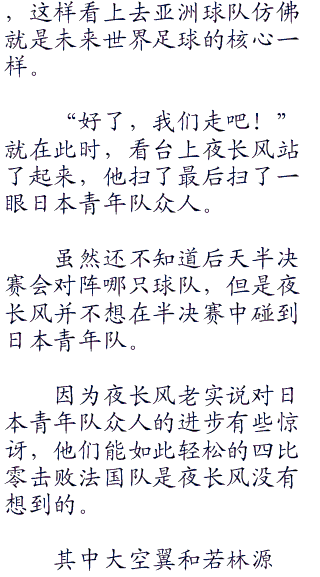 ，这样看上去亚洲球队仿佛
就是未来世界足球的核心一
样。
“好了，我们走吧！”
就在此时，看台上夜长风站
了起来，他扫了最后扫了一
眼日本青年队众人。
虽然还不知道后天半决
赛会对阵哪只球队，但是夜
长风并不想在半决赛中碰到
日本青年队。
因为夜长风老实说对日
本青年队众人的进步有些惊
讶，他们能如此轻松的四比
零击败法国队是夜长风没有
想到的。
其中大空翼和若林源